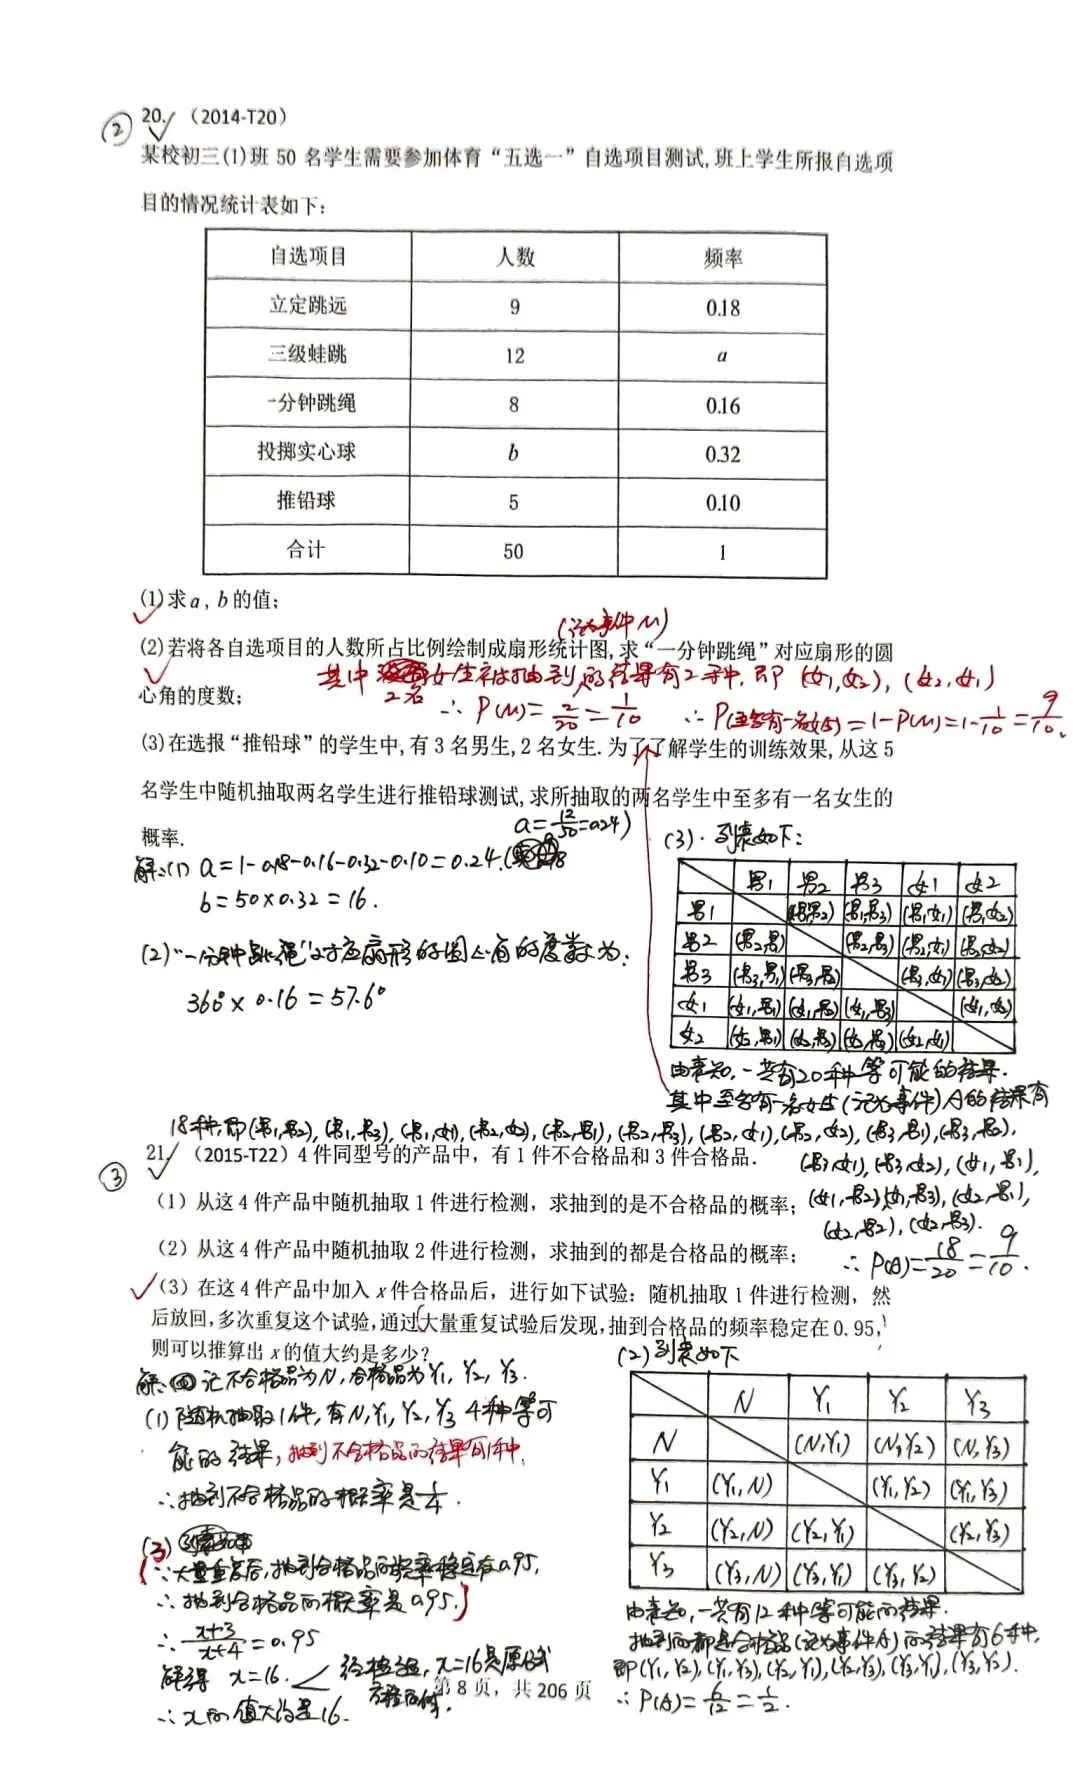 ② 20. (2014-T20)
某校初三(1)班 50 名学生需要参加体育“五选一”自选项目测试,班上学生所报自选项
目的情况统计表如下:
自选项目 人数 频率
立定跳远 9 0.18
三级蛙跳 12 a
一分钟跳绳 8 0.16
投掷实心球 b 0.32
推铅球 5 0.10
合计 50 1
(1)求a, b的值;
(记为事件M)
(2)若将各自选项目的人数所占比例绘制成扇形统计图,求“一分钟跳绳”对应扇形的圆
心角的度数;
其中2名女生被抽到的结果有2种, 即(女1,女2), (女2,女1)
∴P(M)=2/20=1/10 ∴P(至多有一名女生)=1-P(M)=1-1/10=9/10.
(3)在选报“推铅球”的学生中,有3名男生,2名女生.为了了解学生的训练效果,从这5
名学生中随机抽取两名学生进行推铅球测试,求所抽取的两名学生中至多有一名女生的
概率.
a=12/50=0.24)
解:(1) a=1-0.18-0.16-0.32-0.10=0.24.(
b=50×0.32=16.
(2)“一分钟跳绳”对应扇形的圆心角的度数为:
360°×0.16=57.6°
(3). 列表如下:
男1 男2 男3 女1 女2
男1 (男1,男2) (男1,男3) (男1,女1) (男1,女2)
男2 (男2,男1) (男2,男3) (男2,女1) (男2,女2)
男3 (男3,男1) (男3,男2) (男3,女1) (男3,女2)
女1 (女1,男1) (女1,男2) (女1,男3) (女1,女2)
女2 (女2,男1) (女2,男2) (女2,男3) (女2,女1)
由表知,一共有20种等可能的结果.
其中至多有一名女生(记为事件)A的结果有
18种,即(男1,男2),(男1,男3),(男1,女1),(男1,女2),(男2,男1),(男2,男3),(男2,女1),(男2,女2),(男3,男1),(男3,男2),
(男3,女1),(男3,女2),(女1,男1),
(女1,男2),(女1,男3),(女2,男1),
(女2,男2),(女2,男3).
∴P(A)=18/20=9/10.
③ 21. (2015-T22) 4件同型号的产品中，有1件不合格品和3件合格品.
（1）从这4件产品中随机抽取1件进行检测，求抽到的是不合格品的概率；
（2）从这4件产品中随机抽取2件进行检测，求抽到的都是合格品的概率；
（3）在这4件产品中加入x件合格品后，进行如下试验：随机抽取1件进行检测，然
后放回,多次重复这个试验,通过大量重复试验后发现,抽到合格品的频率稳定在0.95,
则可以推算出x的值大约是多少?
解: 记不合格品为N,合格品为Y1, Y2, Y3.
(1) 随机抽取1件,有N,Y1,Y2,Y3 4种等可
能的结果,抽到不合格品的结果有1种,
∴抽到不合格品的概率是1/4.
(3)
∵大量重复后,抽到合格品的频率稳定在0.95,
∴抽到合格品的概率是0.95.
∴(x+3)/(x+4)=0.95
解得 x=16. 经检验,x=16是原分式
方程的解.
∴x的值大约是16.
(2)列表如下
N Y1 Y2 Y3
N (N,Y1) (N,Y2) (N,Y3)
Y1 (Y1,N) (Y1,Y2) (Y1,Y3)
Y2 (Y2,N) (Y2,Y1) (Y2,Y3)
Y3 (Y3,N) (Y3,Y1) (Y3,Y2)
由表知,一共有12种等可能的结果.
抽到的都是合格品(记为事件A)的结果有6种,
即(Y1,Y2),(Y1,Y3),(Y2,Y1),(Y2,Y3),(Y3,Y1),(Y3,Y2).
∴P(A)=6/12=1/2.
第8页，共206页